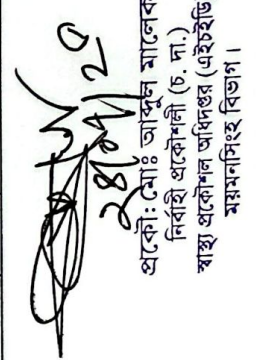 প্রকৌ: মোঃ আব্দুল মালেক
নির্বাহী প্রকৌশলী (চ. দা.)
স্বাস্থ্য প্রকৌশল অধিদপ্তর (এইচইডি
ময়মনসিংহ বিভাগ।